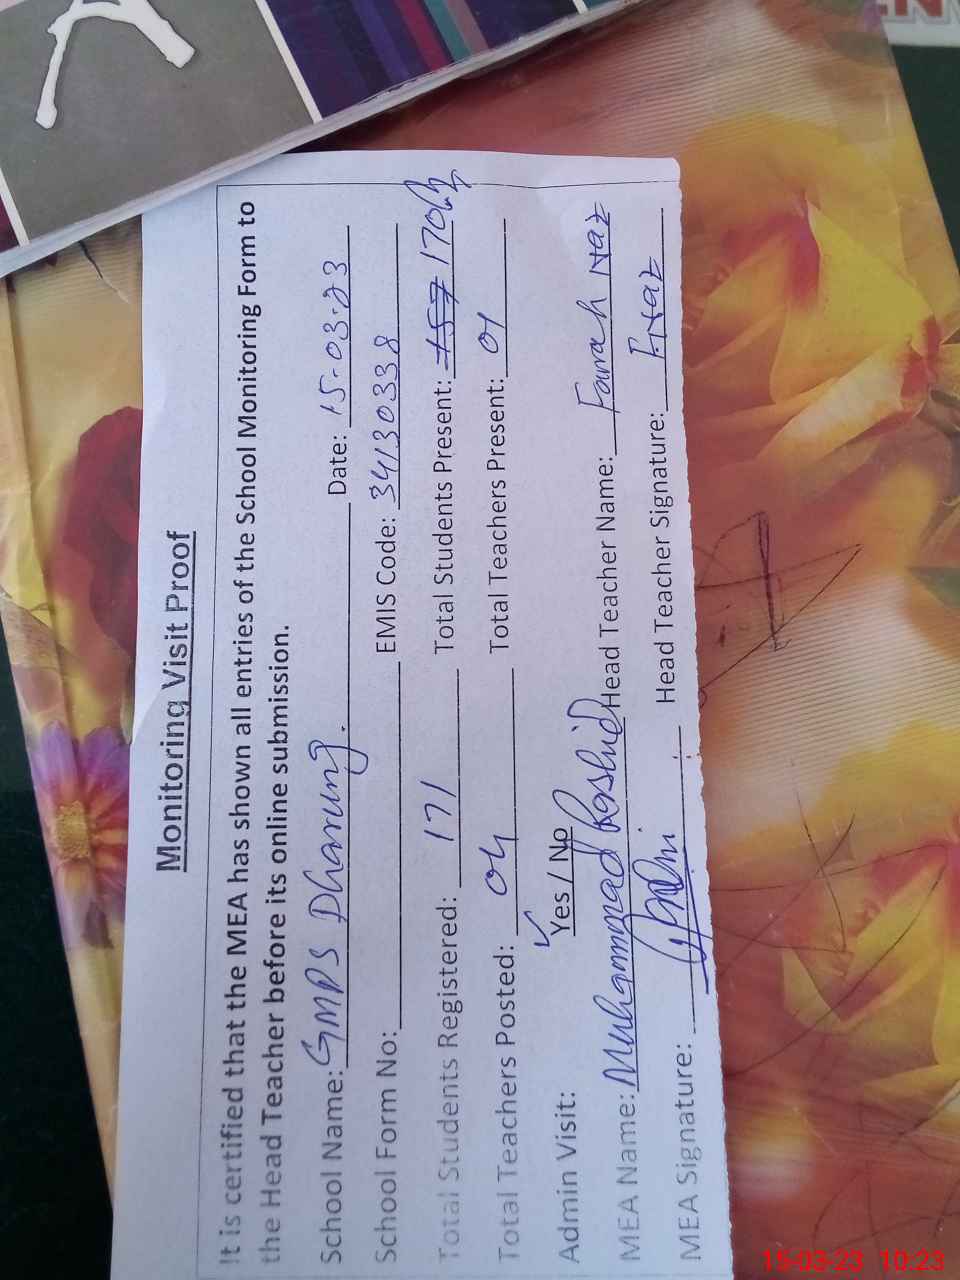 Monitoring Visit Proof
It is certified that the MEA has shown all entries of the School Monitoring Form to
the Head Teacher before its online submission.
School Name: GMPS Dharung. Date: 15-03-23
School Form No: EMIS Code: 34130338
Total Students Registered: 171 Total Students Present: 157 170
Total Teachers Posted: 04 Total Teachers Present: 01
Admin Visit: Yes / No
MEA Name: Muhammad Rashid Head Teacher Name: Farah Naz
MEA Signature: Head Teacher Signature: FNaz
15-03-23 10:23